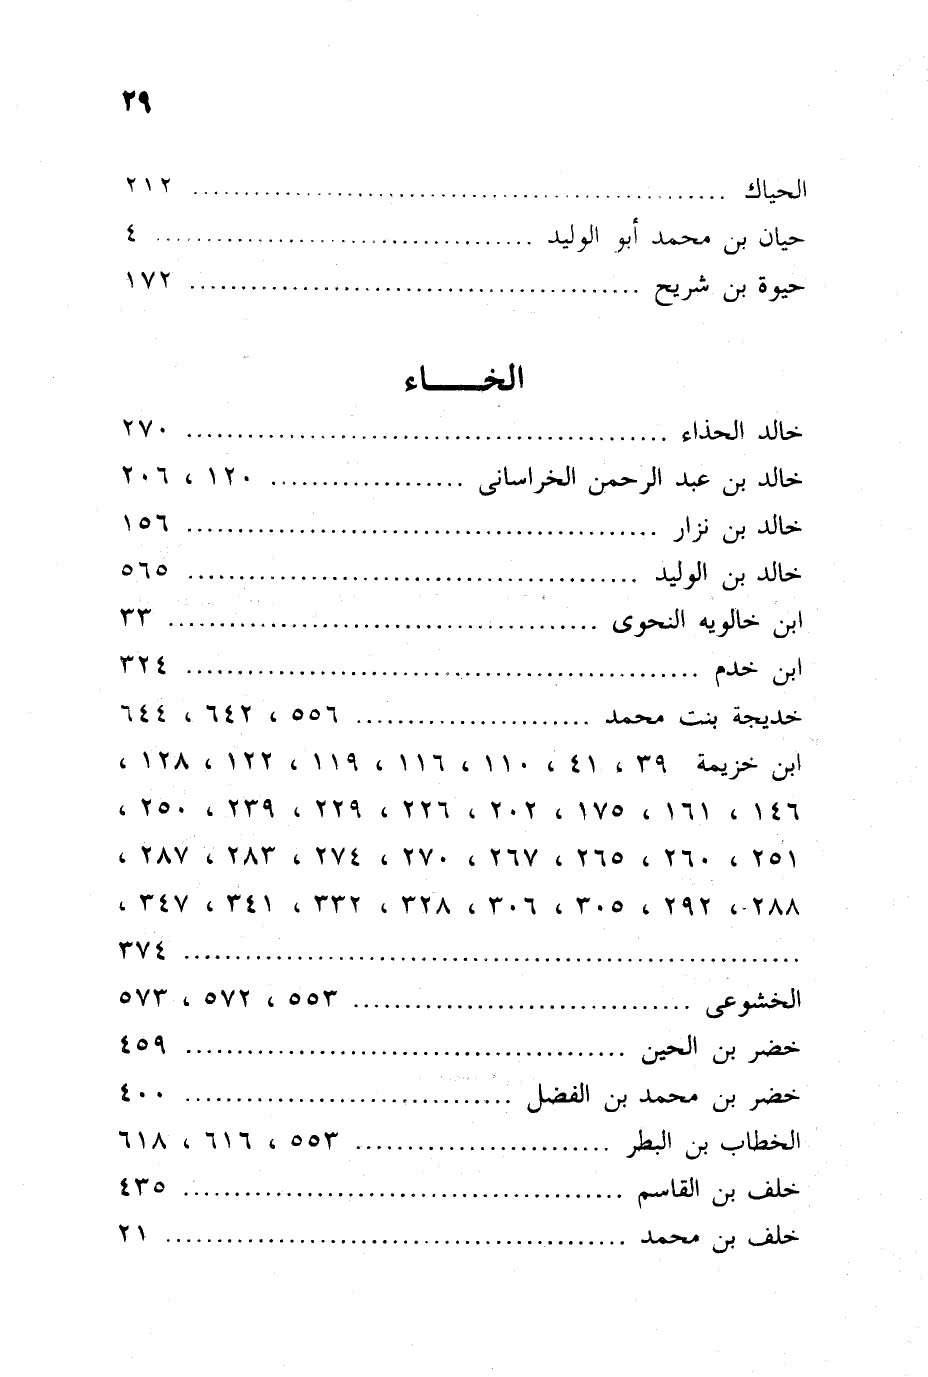 ٢٩
الحياك ........................................ ٢١٢
حيان بن محمد أبو الوليد ........................................ ٤
حيوة بن شريح ........................................ ١٧٢
الخـــاء
خالد الحذاء ........................................ ٢٧٠
خالد بن عبد الرحمن الخراسانى ................... ١٢٠ ، ٢٠٦
خالد بن نزار ........................................ ١٥٦
خالد بن الوليد ........................................ ٥٦٥
ابن خالويه النحوى ........................................ ٣٣
ابن خدم ........................................ ٣٢٤
خديجة بنت محمد ....................... ٥٥٦ ، ٦٤٢ ، ٦٤٤
ابن خزيمة ٣٩ ، ٤١ ، ١١٠ ، ١١٦ ، ١١٩ ، ١٢٢ ، ١٢٨ ،
١٤٦ ، ١٦١ ، ١٧٥ ، ٢٠٢ ، ٢٢٦ ، ٢٢٩ ، ٢٣٩ ، ٢٥٠ ،
٢٥١ ، ٢٦٠ ، ٢٦٥ ، ٢٦٧ ، ٢٧٠ ، ٢٧٤ ، ٢٨٣ ، ٢٨٧ ،
٢٨٨ ، ٢٩٢ ، ٣٠٥ ، ٣٠٦ ، ٣٢٨ ، ٣٣٢ ، ٣٤١ ، ٣٤٧ ،
........................................ ٣٧٤
الخشوعى ................................. ٥٥٣ ، ٥٧٢ ، ٥٧٣
خضر بن الحين ........................................ ٤٥٩
خضر بن محمد بن الفضل ................................ ٤٠٠
الخطاب بن البطر ......................... ٥٥٣ ، ٦١٦ ، ٦١٨
خلف بن القاسم ........................................ ٤٣٥
خلف بن محمد ........................................ ٢١